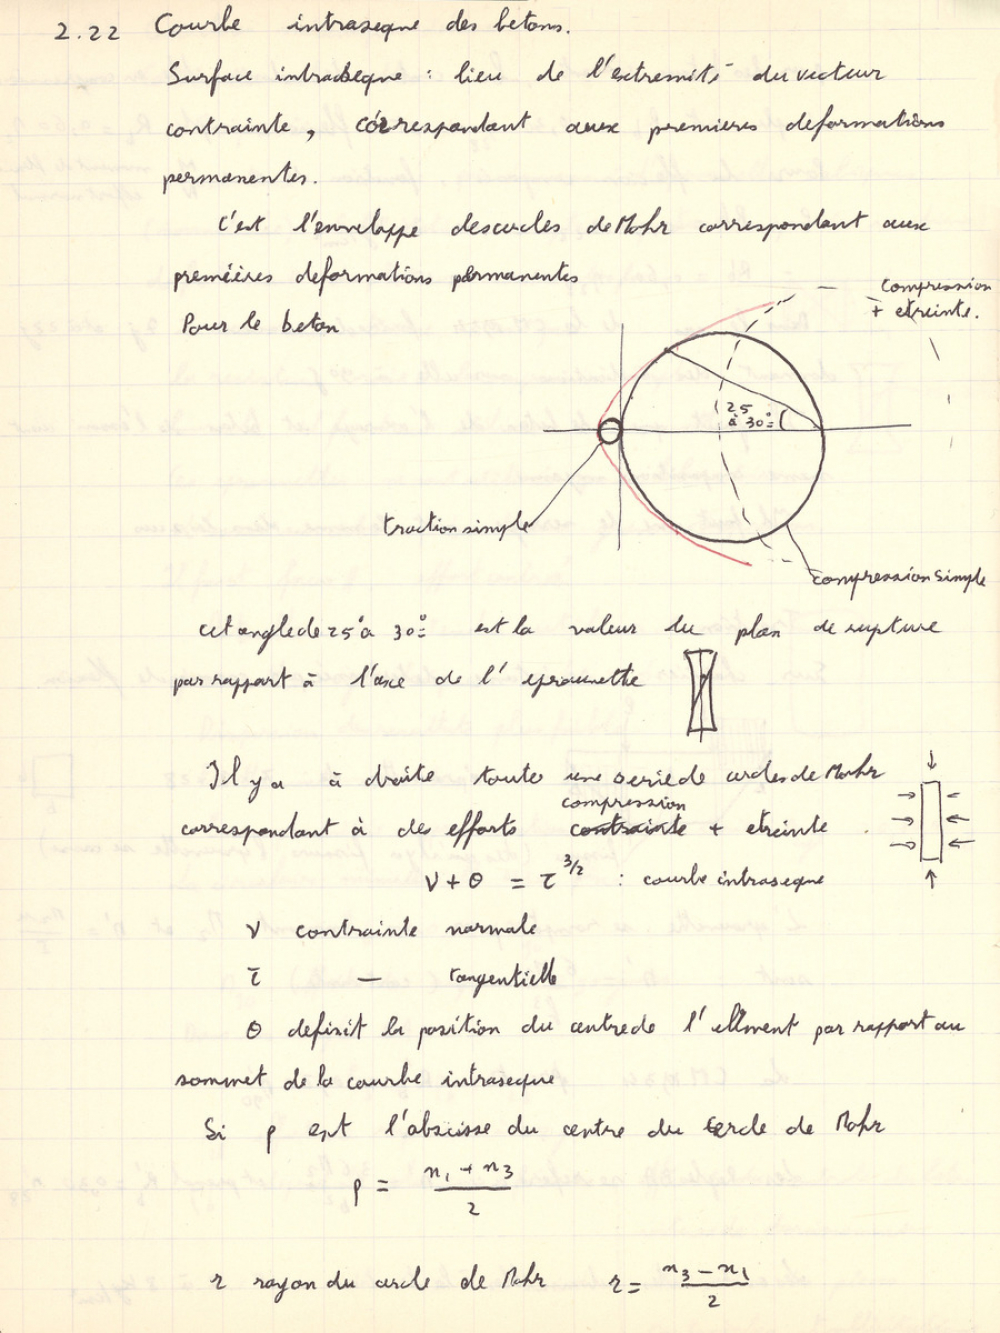 2.22 Courbe intraseque des betons.
Surface intraseque : lieu de l'extremité du vecteur
contrainte, correspondant aux premieres deformations
permanentes.
C'est l'enveloppe des cercles de Mohr correspondant aux
premières deformations permanentes
Pour le beton
compression
+ etreinte.
25
à 30°
traction simple
compression simple
cet angle de 25° à 30° est la valeur du plan de rupture
par rapport à l'axe de l'eprouvette
Il y a à droite toute une serie de cercles de Mohr
compression
correspondant à des efforts contrainte + etreinte
ν + θ = τ^3/2 : courbe intraseque
ν contrainte normale
τ — tangentielle
θ definit la position du centre de l'element par rapport au
sommet de la courbe intraseque
Si ρ est l'abscisse du centre du cercle de Mohr
ρ = n1 + n3
2
r rayon du cercle de Mohr r = n3 - n1
2